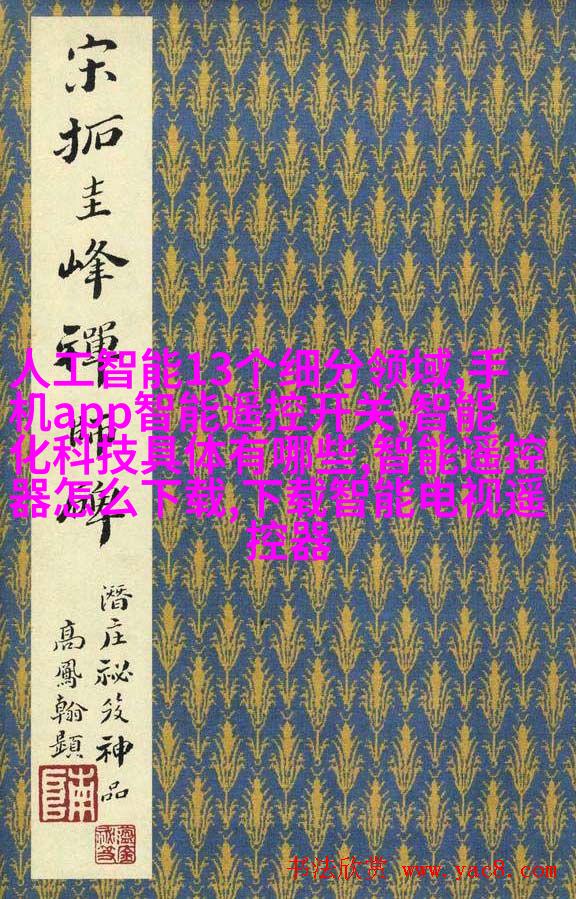 宋拓圭峰禪師碑
潛庄祕笈神品
高鳳翰題
南阜
人工智能13个细分领域,手
机app智能遥控开关,智能
化科技具体有哪些,智能遥控
器怎么下载,下载智能电视遥
控器
书法欣赏 www.yac8.com